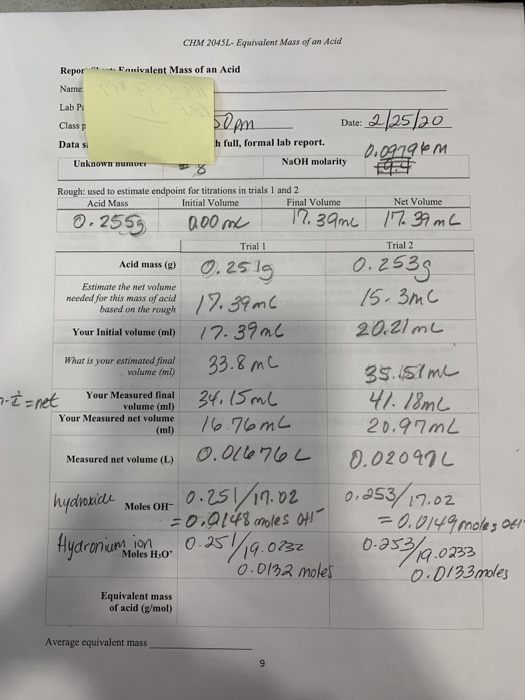 CHM 2045L- Equivalent Mass of an Acid
Equivalent Mass of an Acid
Name
Lab
Class 50pm Date: 2/25/20
Data h full, formal lab report.
Unknown number 8 NaOH molarity 0.0979 M
Rough: used to estimate endpoint for titrations in trials 1 and 2
Acid Mass Initial Volume Final Volume Net Volume
0.255g 0.00 mL 17.39mL 17.39 mL
Trial 1 Trial 2
Acid mass (g) 0.251g 0.253g
Estimate the net volume
needed for this mass of acid
based on the rough 17.39mL 15.3mL
Your Initial volume (ml) 17.39mL 20.21mL
What is your estimated final
volume (ml) 33.8mL 35.51mL
=net Your Measured final
volume (ml) 34.15mL 41.18mL
Your Measured net volume
(ml) 16.76mL 20.97mL
Measured net volume (L) 0.01676L 0.02097L
hydroxide Moles OH- 0.251/17.02 0.253/17.02
=0.0148 moles OH- =0.0149 moles OH
Hydronium ion Moles H3O+ 0.251/19.0232 0.253/19.0233
0.0132 moles 0.0133moles
Equivalent mass
of acid (g/mol)
Average equivalent mass
9